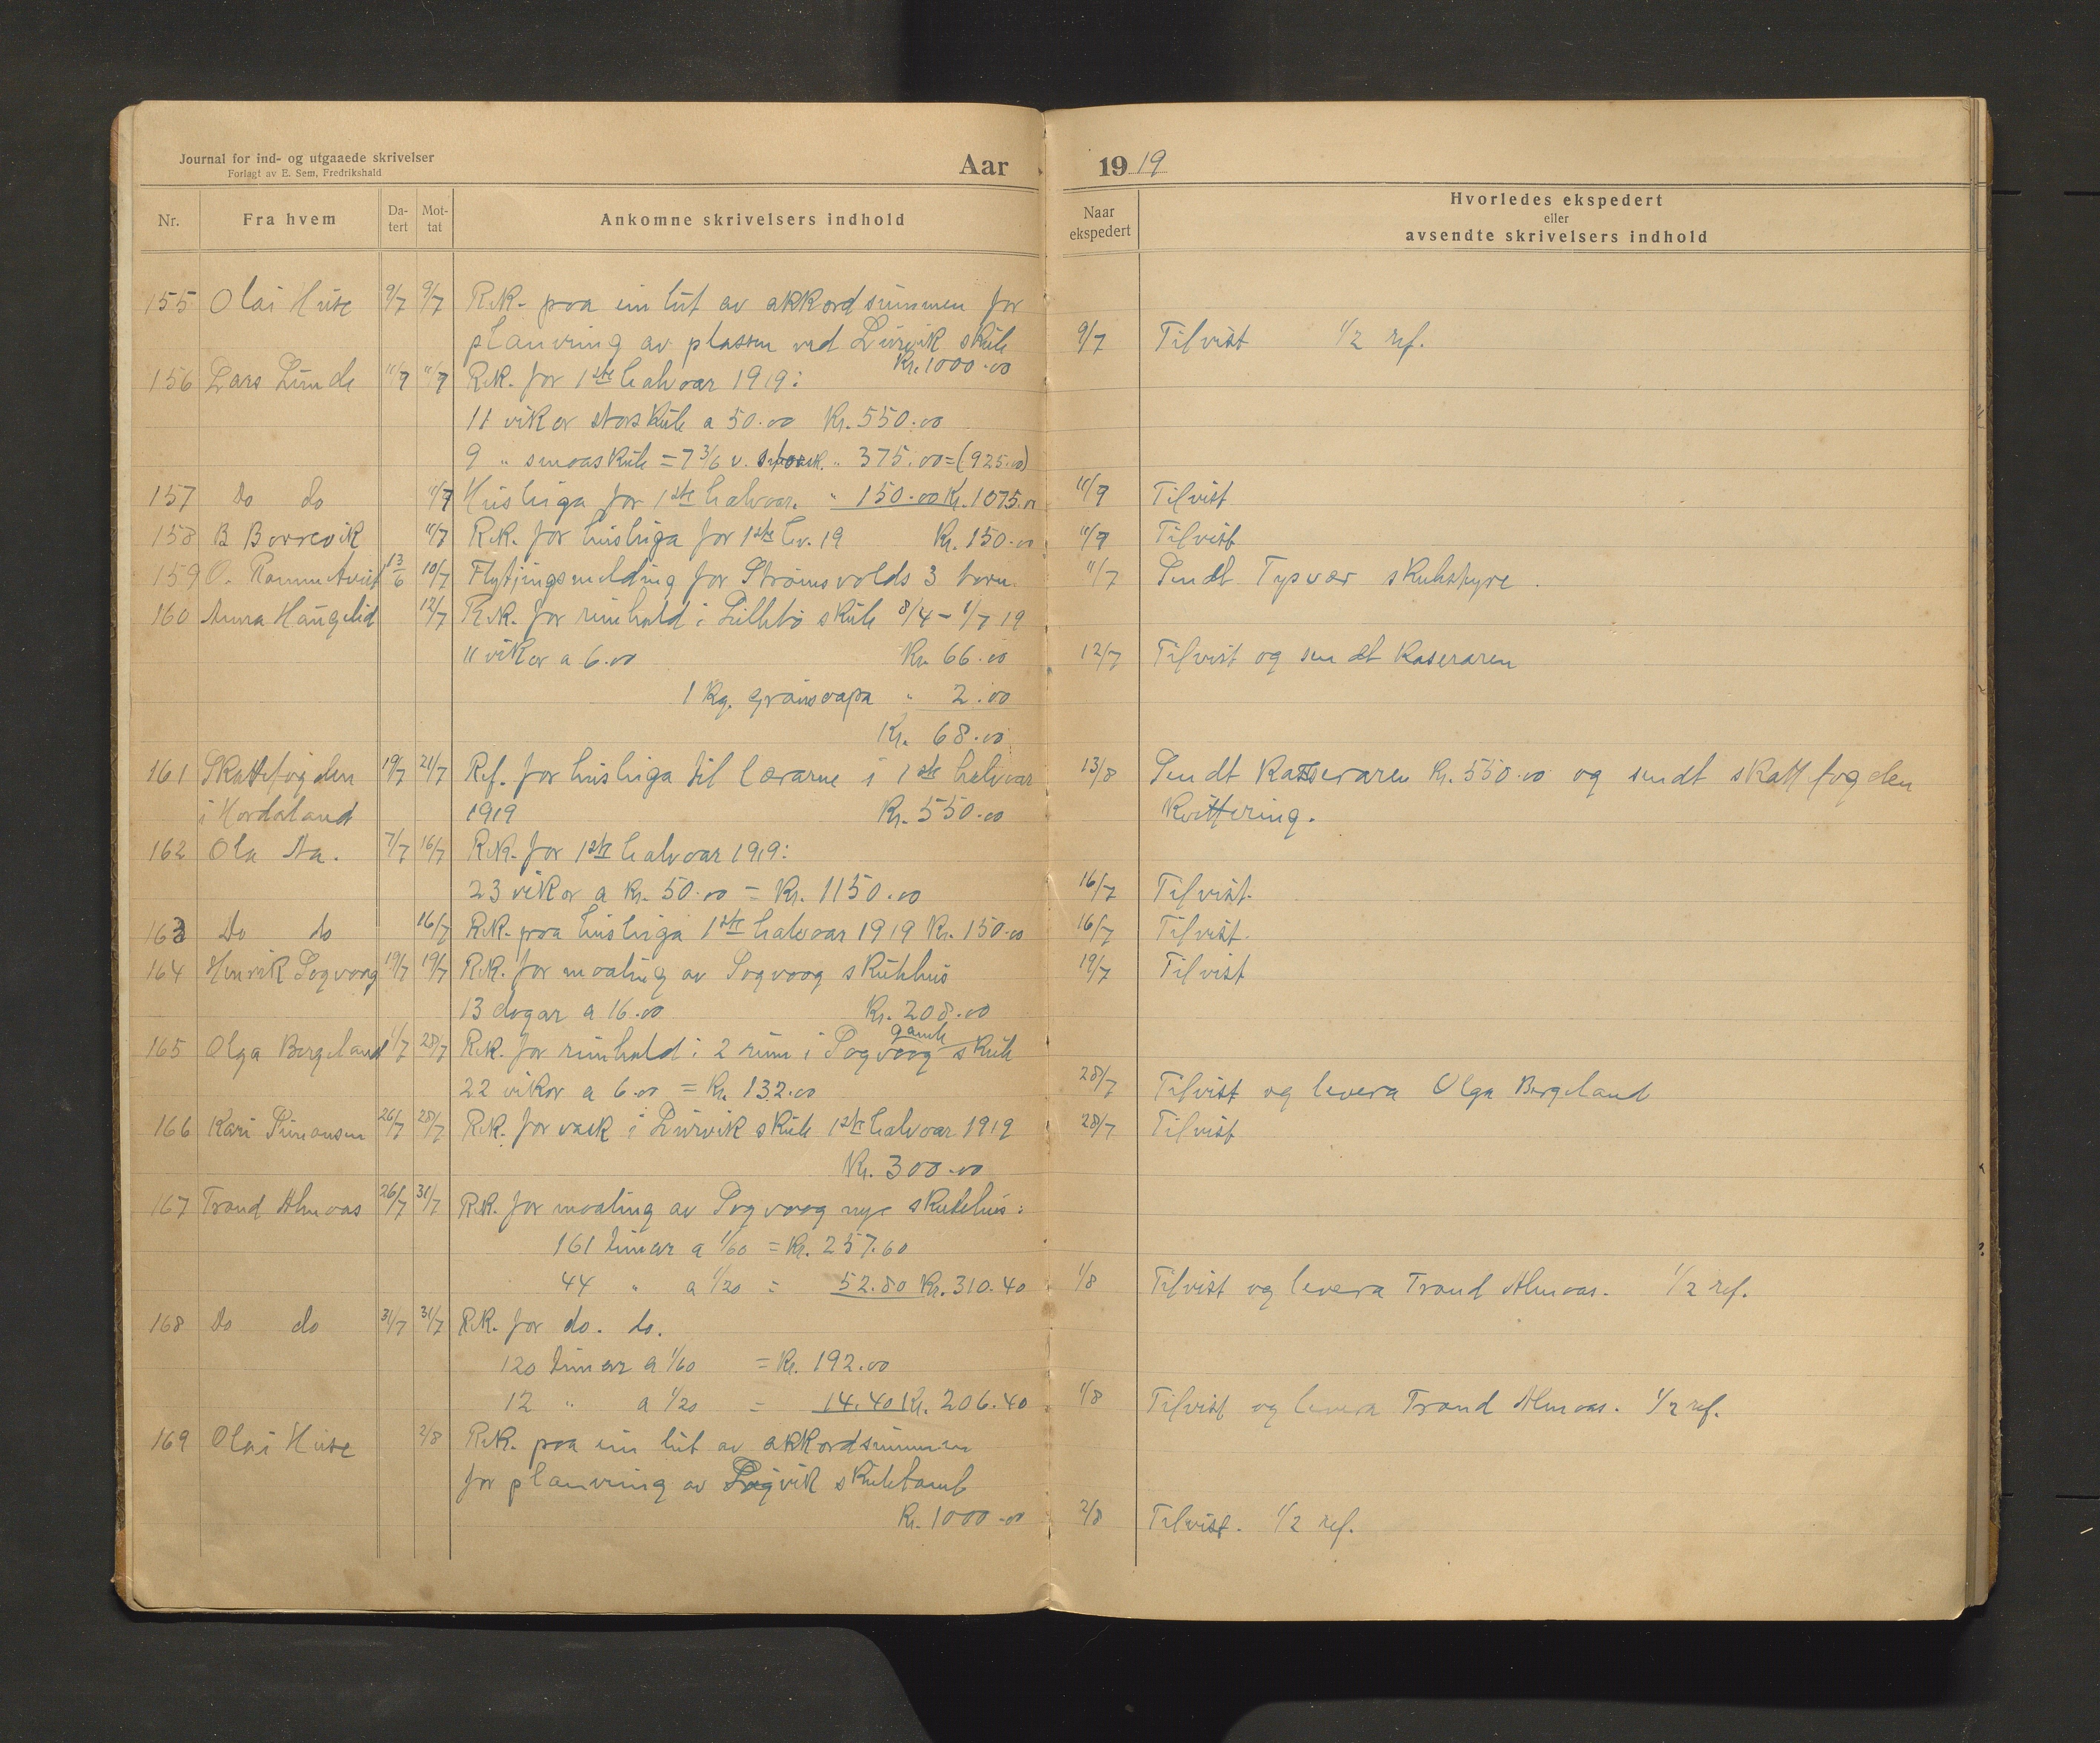 Journal for ind- og utgaaede skrivelser
Forlagt av E. Sem, Fredrikshald
Aar
1919
Nr.
Fra hvem
Da-
tert
Mot-
tat
Ankomne skrivelsers indhold
Naar
ekspedert
Hvorledes ekspedert
eller
avsendte skrivelsers indhold
155 Olai Huse 9/7 9/7 Rek. paa ein lut av akkordsummen for
planering av plassen ved Leirvik skule 9/7 Tilvist 1/2 ref.
Kr. 1000.00
156 Lars Lunde 11/7 11/7 Rek. for 1ste halvaar 1919:
11 vikor storskule a 50.00 Kr. 550.00
9 " smaaskule = 7 3/6 v. " 375.00 = (925.00)
157 Do do 11/7 Husleiga for 1ste halvaar. " 150.00 Kr. 1075.00 11/7 Tilvist
158 B Borrevik 11/7 Rek. for husleiga for 1ste hv. 19 Kr. 150.00 11/7 Tilvist
159 O. 13/6 10/7 Flytjingsmelding for Strømsvolds 3 born. 11/7 Sendt Tysvær skulestyre.
160 Anna Haugelid 12/7 Rek. for reinhald i Litlebø skule 8/4 - 1/7 19
11 vikor a 6.00 Kr. 66.00 12/7 Tilvist og sendt kaseraren
1 kg. grønsaapa " 2.00
Kr. 68.00
161 Skattefogden 19/7 21/7 Ref. for husleiga til lærarne i 1ste halvaar 13/8 Sendt kasseraren Kr. 550.00 og sendt skattfogden
i Hordaland 1919 Kr. 550.00 kvittering.
162 Ola Aa. 7/7 16/7 Rek. for 1ste halvaar 1919:
23 vikor a Kr. 50.00 = Kr. 1150.00 16/7 Tilvist.
163 Do do 16/7 Rek. paa husleiga 1ste halvaar 1919 Kr. 150.00 16/7 Tilvist.
164 Henrik Sogvaag 19/7 19/7 Rek. for maaling av Sogvaag skulehus 19/7 Tilvist
13 dogar a 16.00 Kr. 208.00
165 Olga Bergeland 1/7 28/7 Rek. for reinhald i 2 rum i Sogvaag gamle skule
22 vikor a 6.00 = Kr. 132.00 28/7 Tilvist og levera Olga Bergeland
166 Kari Simonsen 26/7 28/7 Rek. for vask i Leirvik skule 1ste halvaar 1919 28/7 Tilvist
Kr. 300.00
167 Trond Almaas 26/7 31/7 Rek. for maaling av Sogvaag nye skulehus:
161 timar a 1/60 = Kr. 257.60
44 " a 1/20 = 52.80 Kr. 310.40 1/8 Tilvist og levera Trond Almaas. 1/2 ref.
168 Do do 31/7 31/7 Rek. for do. do.
120 timar a 1/60 = Kr. 192.00
12 " a 1/20 = 14.40 Kr. 206.40 1/8 Tilvist og levera Trond Almaas. 1/2 ref.
169 Olai Huse 2/8 Rek. paa ein lut av akkordsummen
for planering av skuletomt
Kr. 1000.00 2/8 Tilvist. 1/2 ref.